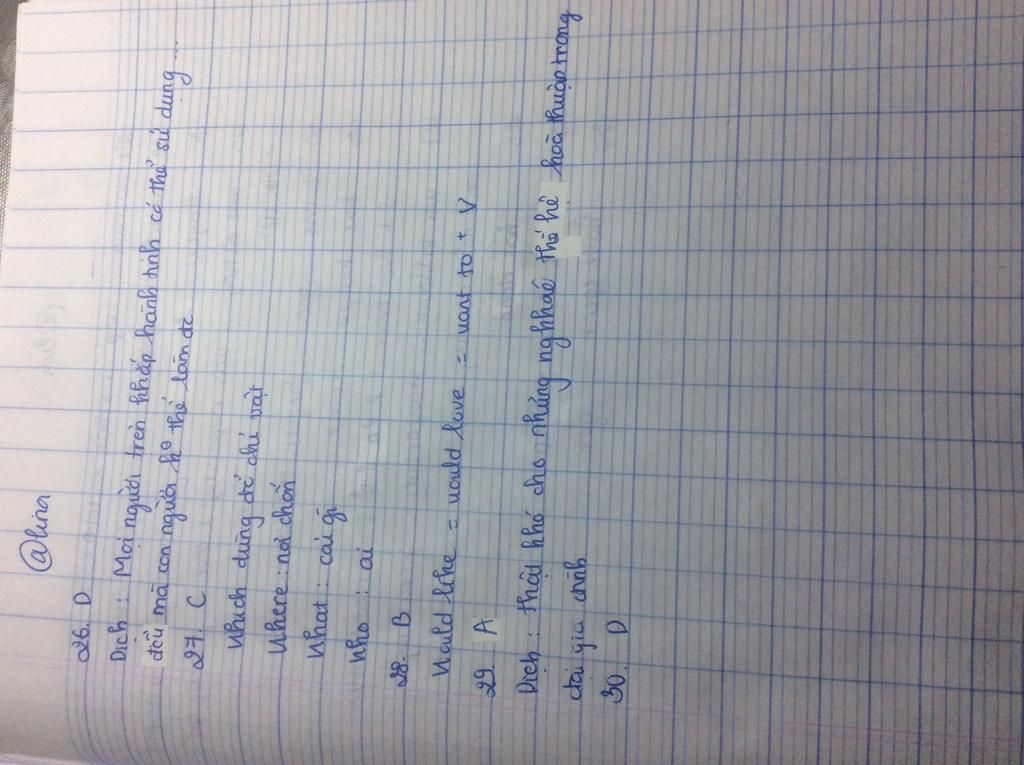 @lina
26. D
Dịch : Mọi người trên khắp hành tinh có thể sử dụng ...
đều mà con người k° thể làm đc
27. C
Which dùng để chỉ vật
Where : nơi chốn
What : cái gì
Who : ai
28. B
Would like = would love = want to + V
29. A
Dịch : thật khó cho những nghhaé thế hệ hoà thuận trong
đại gia đình
30. D